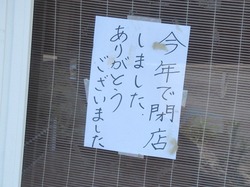 今年で閉店
しました.
ありがとう
ございました